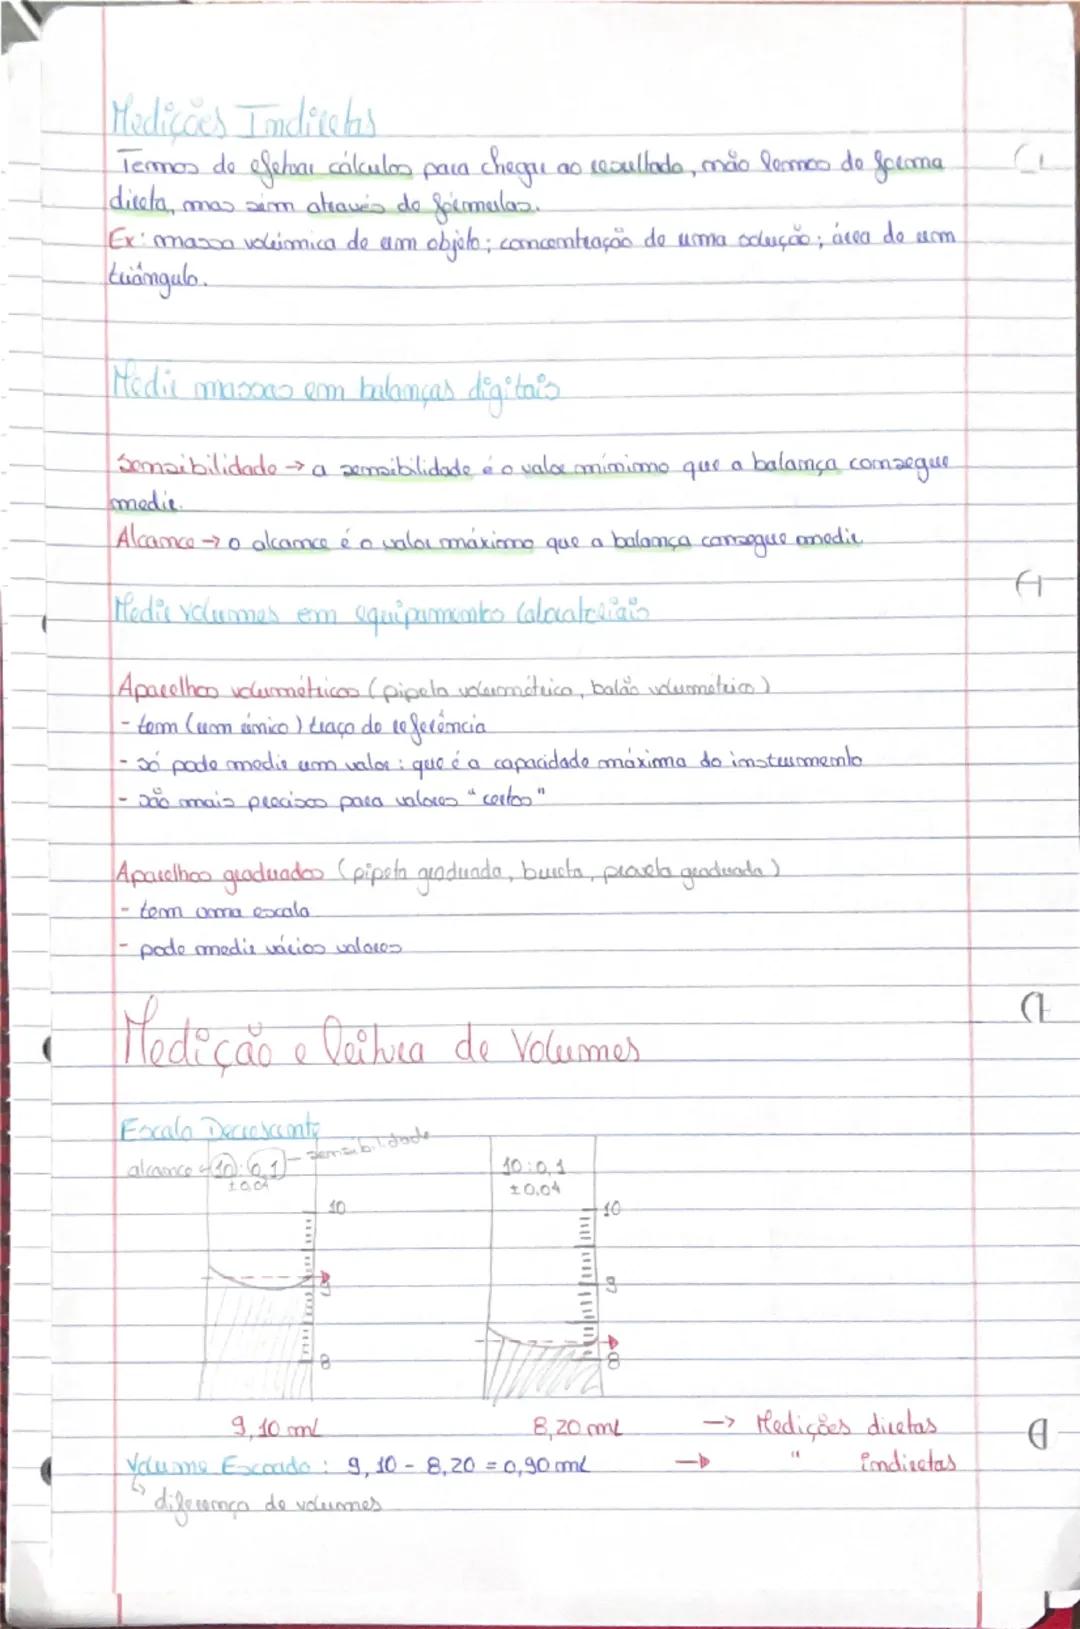 Medições Indiretas
Temos de efetuar cálculos para chegar ao resultado, não lemos de forma
direta, mas sim através de fórmulas.
Ex: massa volúmica de um objeto; concentração de uma solução; área de um
triângulo.
Medir massas em balanças digitais
Sensibilidade → a sensibilidade é o valor mínimo que a balança consegue
medir.
Alcance → o alcance é o valor máximo que a balança consegue medir
Medir volumes em equipamentos laboratoriais
Aparelhos volumétricos (pipeta volumétrica, balão volumétrico)
- tem (um único) traço de referência
- só pode medir um valor: que é a capacidade máxima do instrumento
- são mais precisos para valores "certos"
Aparelhos graduados (pipeta graduada, bureta, proveta graduada)
- tem uma escala
- pode medir vários valores
Medição e leitura de Volumes
Escala Decrescente
alcance ← 10:0,1 - sensibilidade
±0,04
10
9
8
10:0,1
±0,04
10
9
8
9,10 mL 8,20 mL → Medições diretas
Volume Escoado: 9,10 - 8,20 = 0,90 mL → " indiretas
↳ diferença de volumes